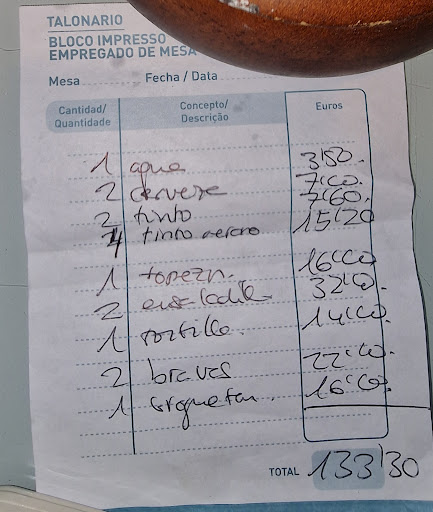 TALONARIO
BLOCO IMPRESSO
EMPREGADO DE MESA
Mesa Fecha / Data
Cantidad/ Quantidade Concepto/ Descrição Euros
1 agua 3'50.
2 cerveza 7'00.
2 tinto 7'60.
4 tinto verano 15'20
1 16'00.
2 ensaladilla 32'00.
1 tortilla. 14'00.
2 bravas 22'00.
1 croquetas. 16'00.
TOTAL 133'30